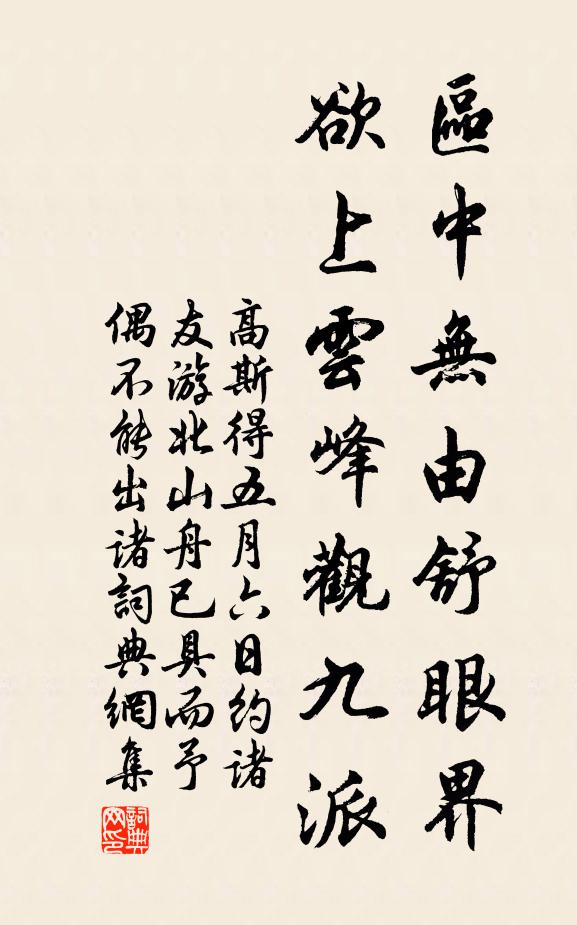 區中無由舒眼界
欲上雲峰觀九派
高斯得五月六日約諸
友游北山舟已具而予
偶不能出諸詞典網集
詞典
网印